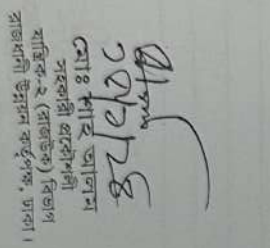 মোঃ শাহ আলম
সহকারী প্রকৌশলী
যান্ত্রিক-২ (রাজউক) বিভাগ
রাজধানী উন্নয়ন কর্তৃপক্ষ, ঢাকা।